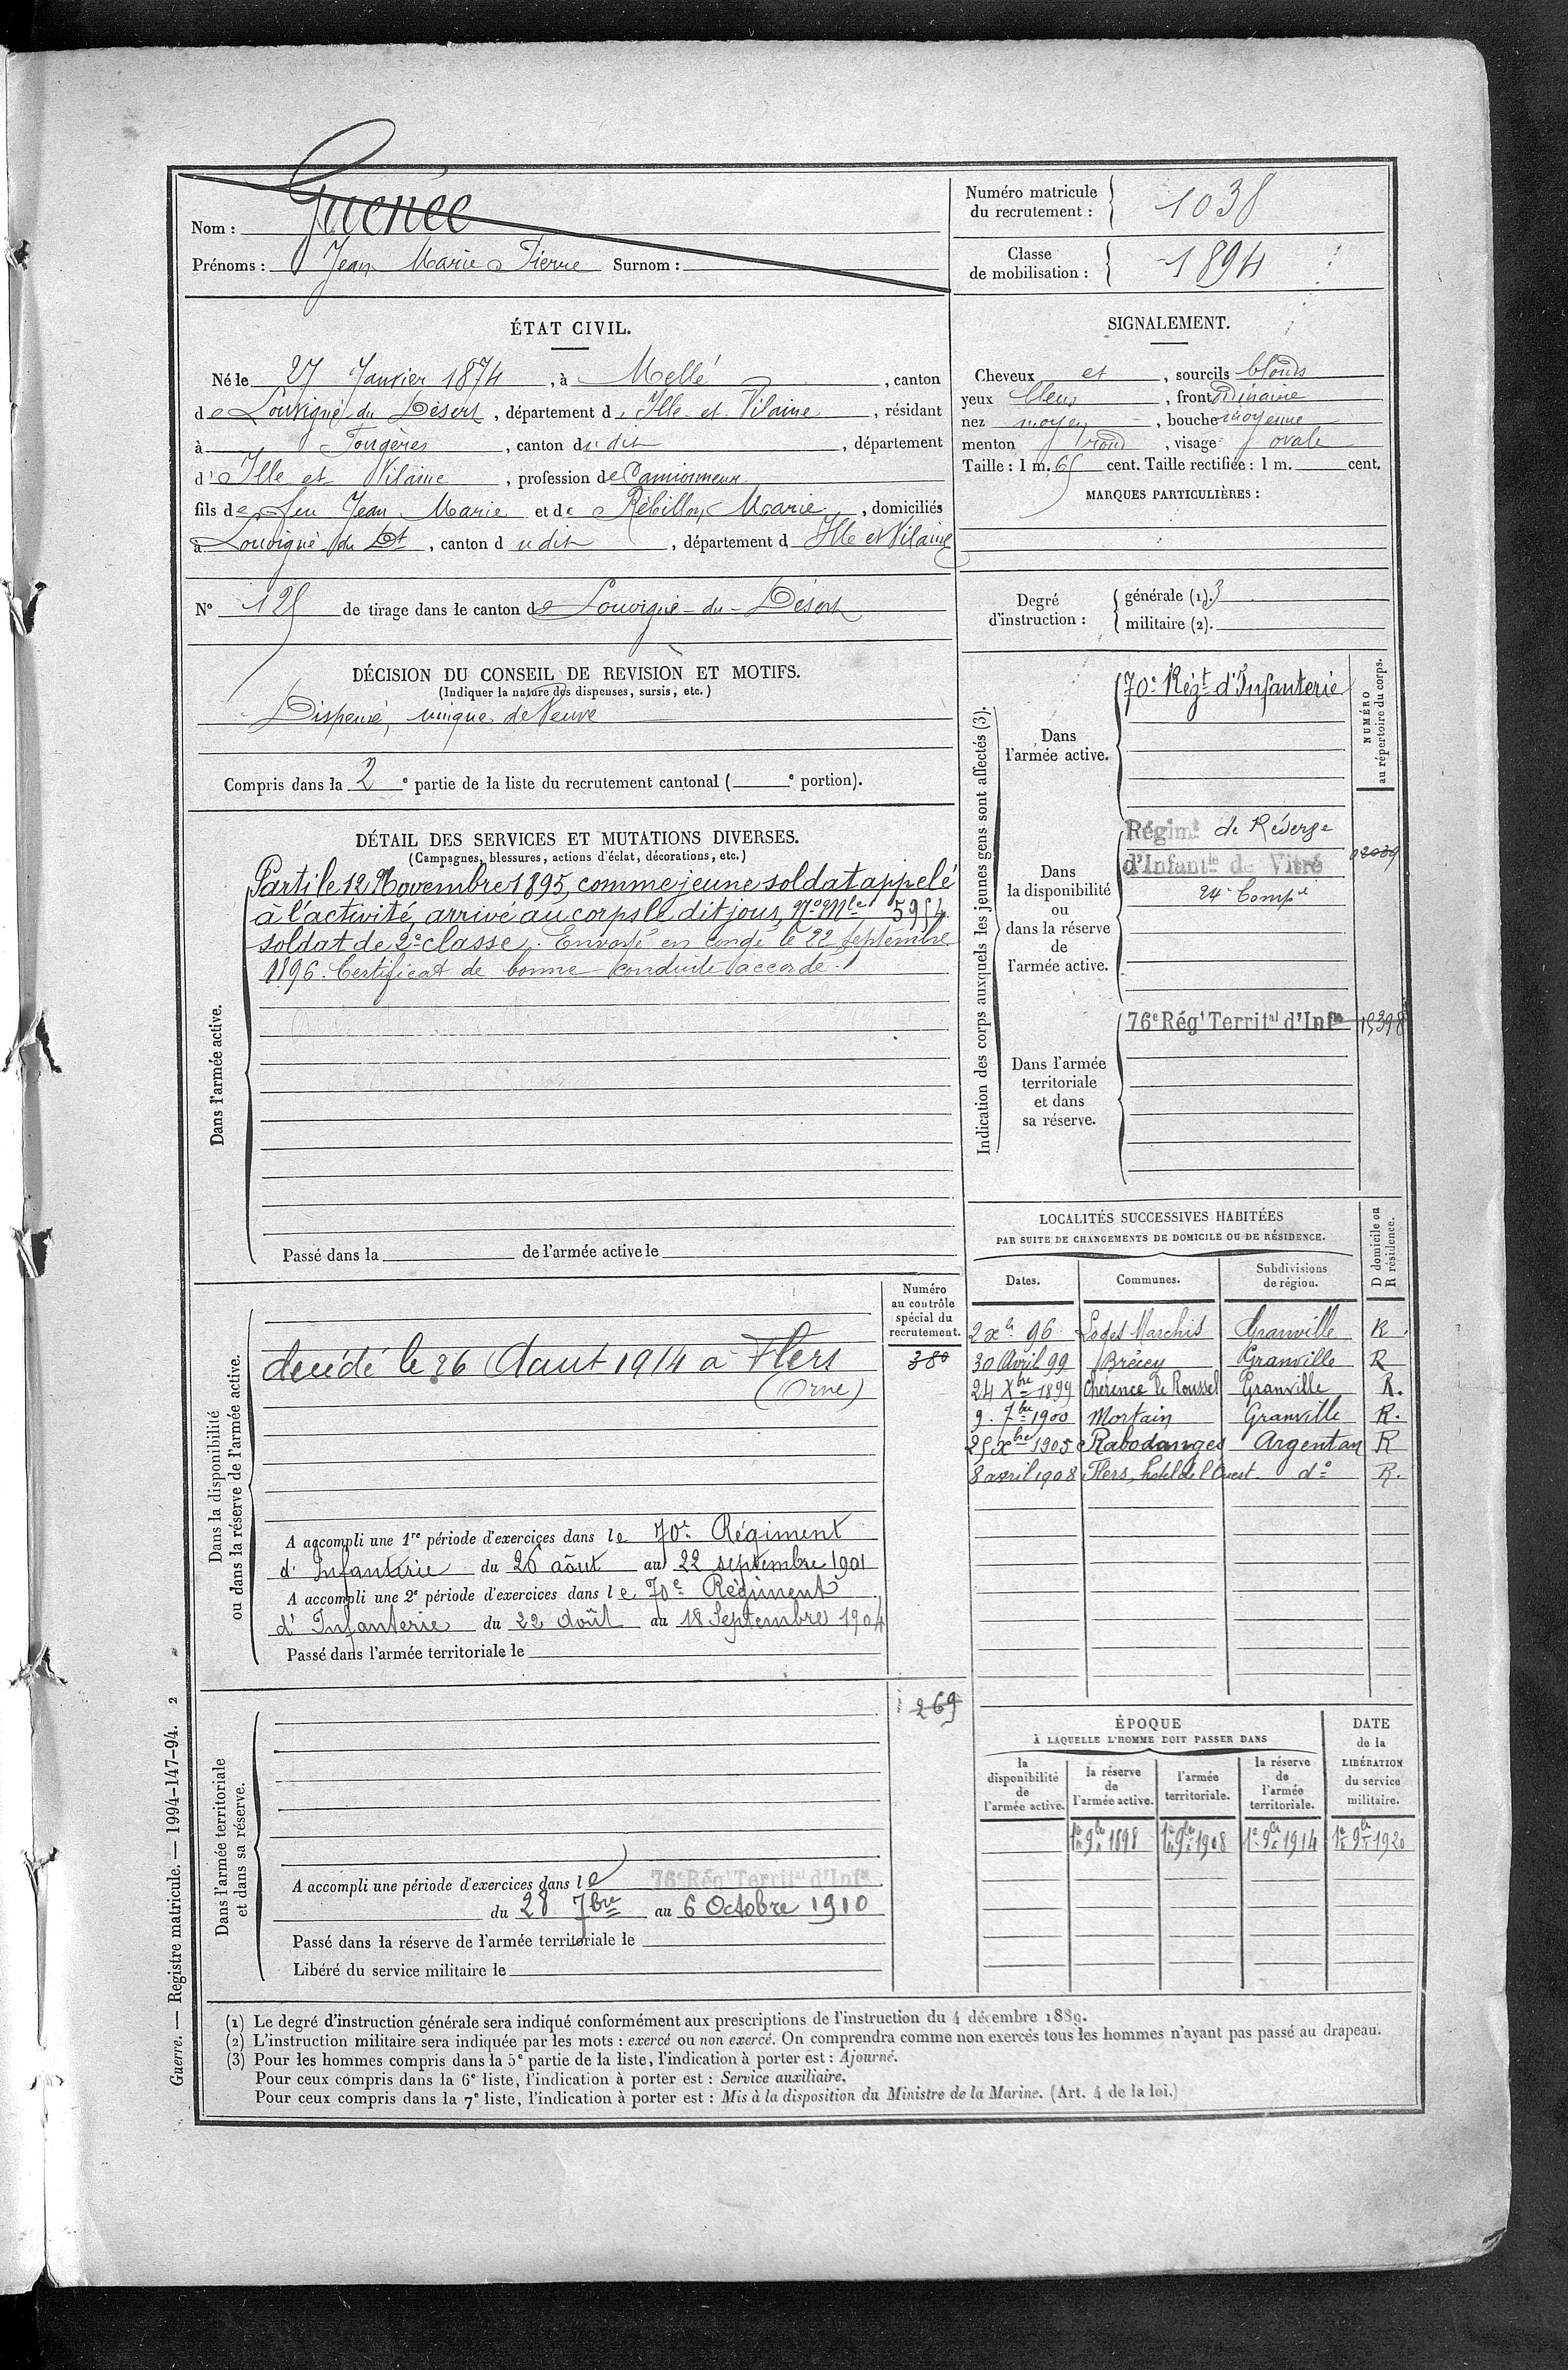 Nom : Guénée
Prénoms : Jean Marie Pierre Surnom :
Numéro matricule du recrutement : 1038
Classe de mobilisation : 1894
ÉTAT CIVIL.
Né le 27 Janvier 1874, à Mellé, canton
de Louvigné du Désert, département d'Ille et Vilaine, résidant
à Fougères, canton dudit, département
d'Ille et Vilaine, profession de Camionneur
fils de feu Jean Marie et de Rébillon Marie, domiciliés
à Louvigné du Dt, canton dudit, département d Ille et Vilaine
N° 125 de tirage dans le canton de Louvigné-du-Désert
SIGNALEMENT.
Cheveux et, sourcils blonds
yeux bleus, front ordinaire
nez moyen, bouche moyenne
menton rond, visage ovale
Taille : 1 m. 65 cent. Taille rectifiée : 1 m. cent.
MARQUES PARTICULIÈRES :
Degré d'instruction : générale (1). 3
militaire (2).
DÉCISION DU CONSEIL DE REVISION ET MOTIFS.
(Indiquer la nature des dispenses, sursis, etc.)
Dispensé, unique de Veuve
Compris dans la 2e partie de la liste du recrutement cantonal ( e portion).
DÉTAIL DES SERVICES ET MUTATIONS DIVERSES.
(Campagnes, blessures, actions d'éclat, décorations, etc.)
Dans l'armée active.
Parti le 12 Novembre 1895, comme jeune soldat appelé
à l'activité, arrivé au corps le dit jour, N° Mle 5954
soldat de 2e classe. Envoyé en congé le 22 Septembre
1896. Certificat de bonne conduite accordé.
Passé dans la de l'armée active le
Indication des corps auxquels les jeunes gens sont affectés (3).
NUMÉRO au répertoire du corps.
Dans l'armée active.
70e Régt d'Infanterie
Dans la disponibilité ou dans la réserve de l'armée active.
Régimt de Réserve
d'Infantie de Vitré
24e Compie
02039
Dans l'armée territoriale et dans sa réserve.
76e Régt Territal d'Infie 15398
LOCALITÉS SUCCESSIVES HABITÉES
PAR SUITE DE CHANGEMENTS DE DOMICILE OU DE RÉSIDENCE.
Dates. Communes. Subdivisions de région. D domicile ou R résidence.
2 Xbre 96 Loges Marchis Granville R.
30 Avril 99 Brécey Granville R
24 Xbre 1899 Chérencé le Roussel Granville R.
9. 7bre 1900 Mortain Granville R.
25 Xbre 1905 Rabodanges Argentan R
8 avril 1908 Flers, hotel de l'Ouest d° R.
Dans la disponibilité ou dans la réserve de l'armée active.
Numéro au contrôle spécial du recrutement.
380
décédé le 26 Aout 1914 à Flers
(Orne)
A accompli une 1re période d'exercices dans le 70e Régiment
d'Infanterie du 26 août au 22 septembre 1901
A accompli une 2e période d'exercices dans le 70e Régiment
d'Infanterie du 22 Août au 18 Septembre 1904
Passé dans l'armée territoriale le
Dans l'armée territoriale et dans sa réserve.
269
A accompli une période d'exercices dans le 76e Régt Territal d'Infie
du 28 7bre au 6 Octobre 1910
Passé dans la réserve de l'armée territoriale le
Libéré du service militaire le
ÉPOQUE
À LAQUELLE L'HOMME DOIT PASSER DANS
la disponibilité de l'armée active. la réserve de l'armée active. l'armée territoriale. la réserve de l'armée territoriale. DATE de la LIBÉRATION du service militaire.
1er 9bre 1898 1er 9bre 1908 1er 9bre 1914 1er 9bre 1920
(1) Le degré d'instruction générale sera indiqué conformément aux prescriptions de l'instruction du 4 décembre 1889.
(2) L'instruction militaire sera indiquée par les mots : exercé ou non exercé. On comprendra comme non exercés tous les hommes n'ayant pas passé au drapeau.
(3) Pour les hommes compris dans la 5e partie de la liste, l'indication à porter est : Ajourné.
Pour ceux compris dans la 6e liste, l'indication à porter est : Service auxiliaire.
Pour ceux compris dans la 7e liste, l'indication à porter est : Mis à la disposition du Ministre de la Marine. (Art. 4 de la loi.)
Guerre. — Registre matricule. — 1994-147-94. 2